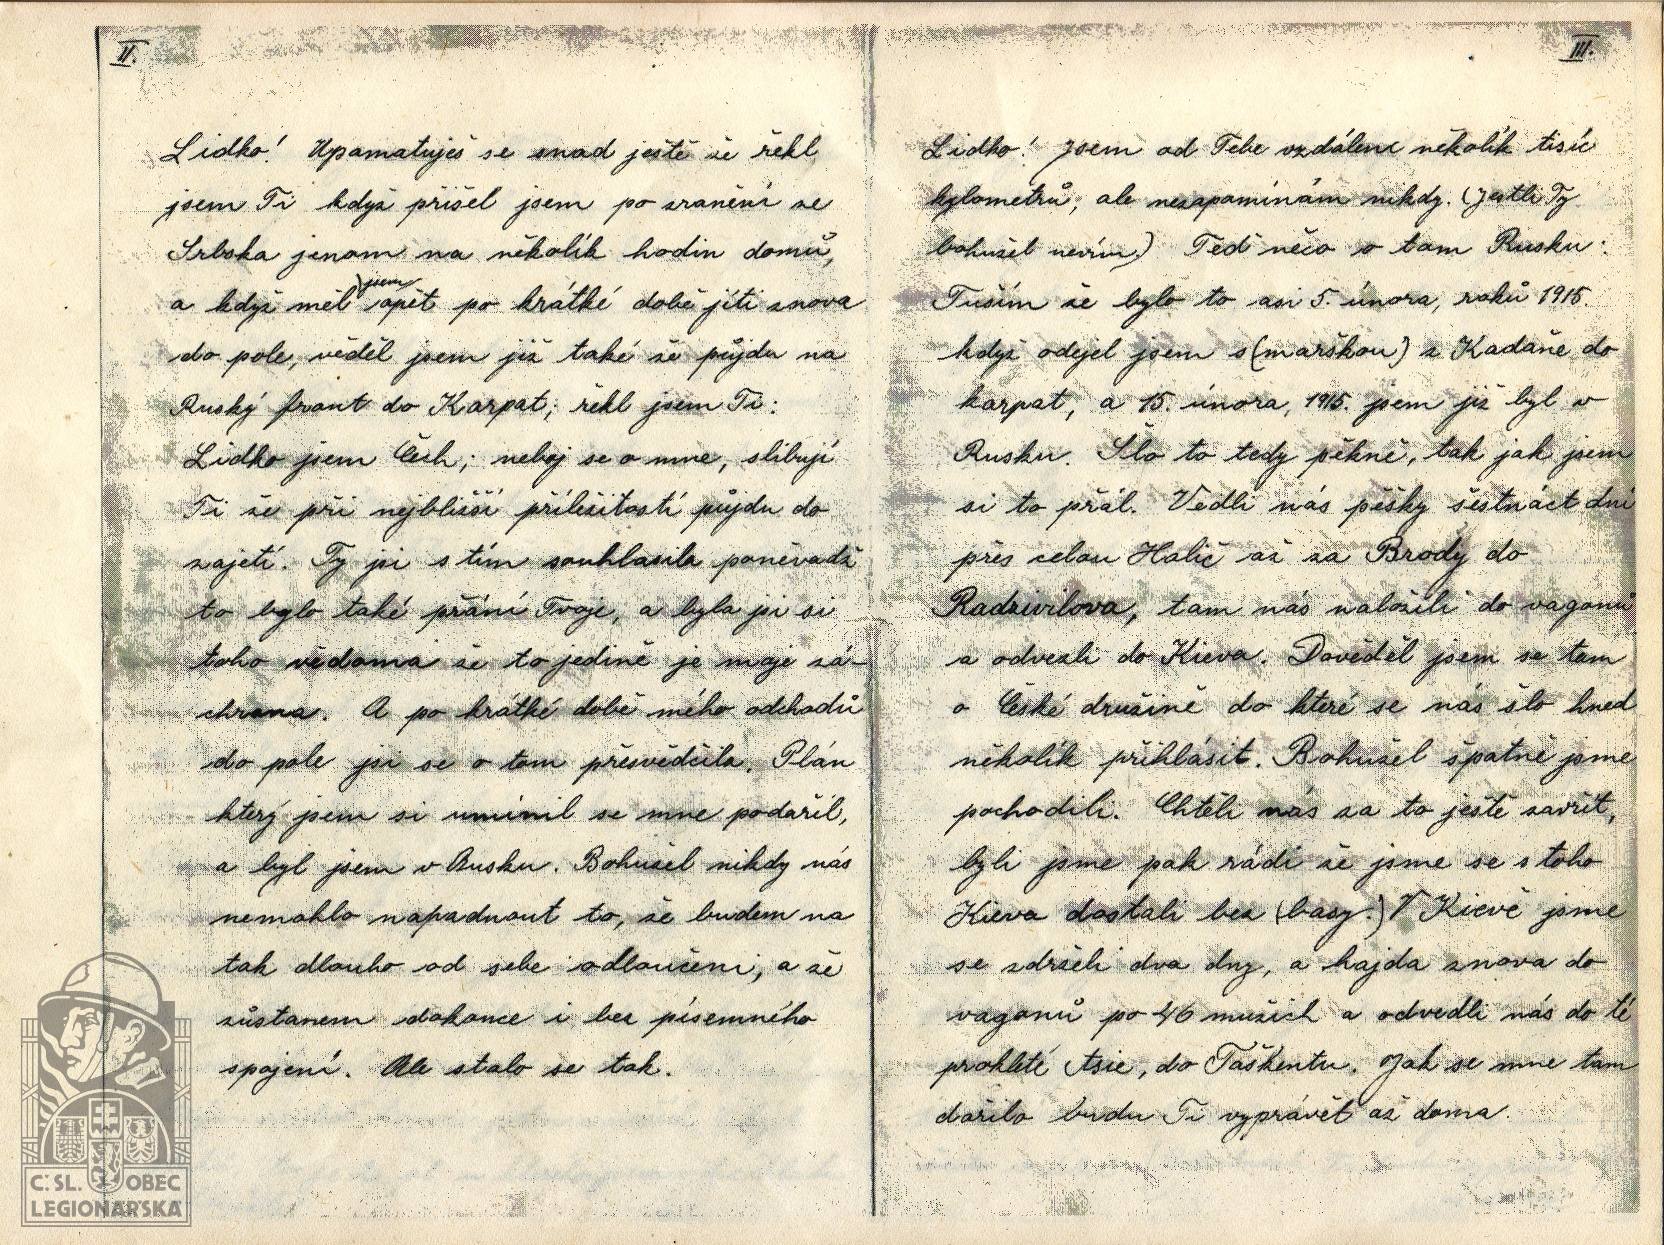 II.
Lidko! Upamatuješ se snad ještě že řekl
jsem Ti když přišel jsem po zranění ze
Srbska jenom na několik hodin domů,
a když měl jsem opět po krátké době jíti znova
do pole, věděl jsem již také že půjdu na
Ruský front do Karpat; řekl jsem Ti:
Lidko jsem Čech; neboj se o mne, slibuji
Ti že při nejbližší příležitosti půjdu do
zajetí. Ty jsi s tím souhlasila poněvadž
to bylo také přání Tvoje, a byla jsi si
toho vědoma že to jedině je moje zá-
chrana. A po krátké době mého odchodů
do pole jsi se o tom přesvědčila. Plán
který jsem si umínil se mne podařil,
a byl jsem v Rusku. Bohužel nikdy nás
nemohlo napadnout to, že budem na
tak dlouho od sebe odloučeni, a že
zůstanem dokonce i bez písemného
spojení. Ale stalo se tak.
III.
Lidko! Jsem od Tebe vzdálený několik tisíc
kylometrů, ale nezapomínám nikdy. (Jestli Ty
bohužel nevím.) Teď něco o tom Rusku:
Tuším že bylo to asi 5. února, roků 1915.
když odejel jsem s (marškou) z Kadaně do
karpat, a 15. února, 1915. jsem již byl v
Rusku. Šlo to tedy pěkně, tak jak jsem
si to přál. Vedli nás pěšky šestnáct dní
přes celou Halič až za Brody do
Radzivilova, tam nás naložili do vagonů
a odvezli do Kieva. Dověděl jsem se tam
o České družině do které se nás šlo hned
několik přihlásit. Bohužel špatně jsme
pochodili. Chtěli nás za to ještě zavřít,
byli jsme pak rádi že jsme se s toho
Kieva dostali bez (basy.) V Kievě jsme
se zdrželi dva dny, a hajda znova do
vagonů po 46 mužích a odvedli nás do té
prokleté Asie, do Taškentu. Jak se mne tam
dařilo budu Ti vyprávět až doma.
Č.SL. OBEC
LEGIONÁŘSKÁ